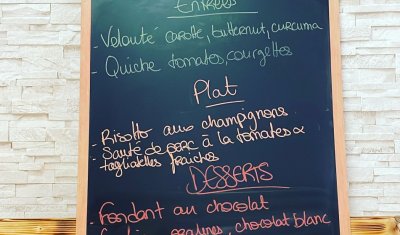 Entrées
- Velouté carotte, butternut, curcuma
- Quiche tomates, courgettes
Plat
- Risotto aux champignons
- Sauté de porc à la tomates &
tagliatelles fraiches
DESSERTS
- Fondant au chocolat
pralines, chocolat blanc